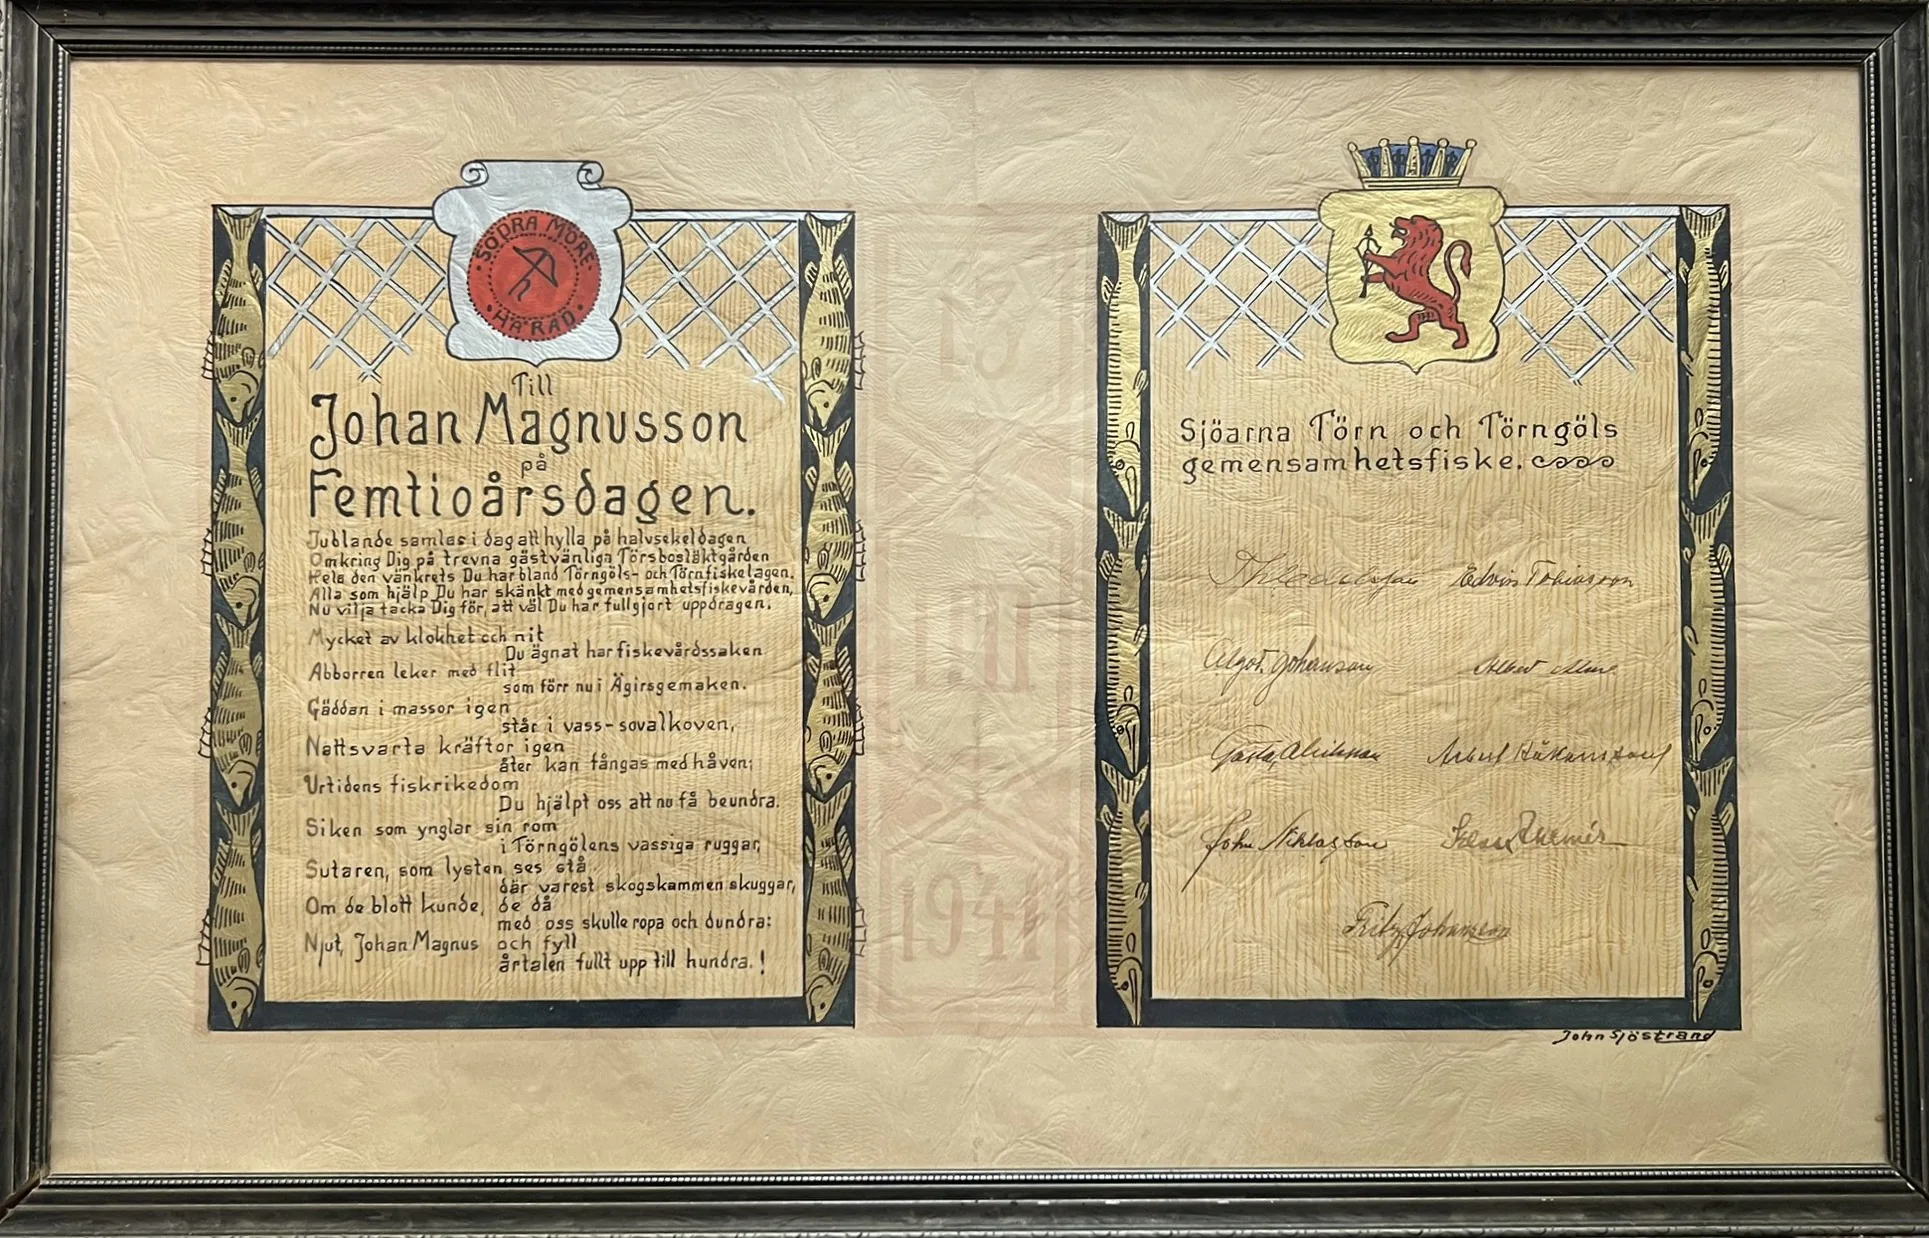 SÖDRA MÖRE
HÄRAD
Till
Johan Magnusson
på
Femtioårsdagen.
Jublande samlas i dag att hylla på halvsekeldagen
Omkring Dig på trevna gästvänliga Törsbosläktgården
Hela den vänkrets Du har bland Törngöls- och Törnfiskelagen.
Alla som hjälp Du har skänkt med gemensamhetsfiskevården,
Nu vilja tacka Dig för, att väl Du har fullgjort uppdragen.
Mycket av klokhet och nit
Du ägnat har fiskevårdssaken
Abborren leker med flit
som förr nu i Ägirsgemaken.
Gäddan i massor igen
står i vass-sovalkoven,
Nattsvarta kräftor igen
åter kan fångas med håven;
Urtidens fiskrikedom
Du hjälpt oss att nu få beundra.
Siken som ynglar sin rom
i Törngölens vassiga ruggar,
Sutaren, som lysten ses stå
där varest skogskammen skuggar,
Om de blott kunde, de då
med oss skulle ropa och dundra:
Njut, Johan Magnus och fyll
årtalen fullt upp till hundra.!
13
11
1941
Sjöarna Törn och Törngöls
gemensamhetsfiske.
Edvin Tobiasson
Algot Johansson Albert
Gösta Albert Håkansson
John Niklasson
Fritz Johansson
John Sjöstrand